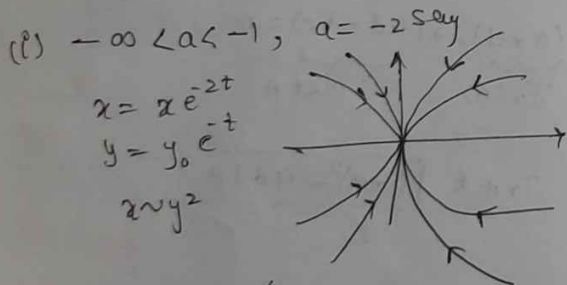 (i) - ∞ < a < -1, a = -2 say
x = x e^{-2t}
y = y₀ e^{-t}
x ~ y²